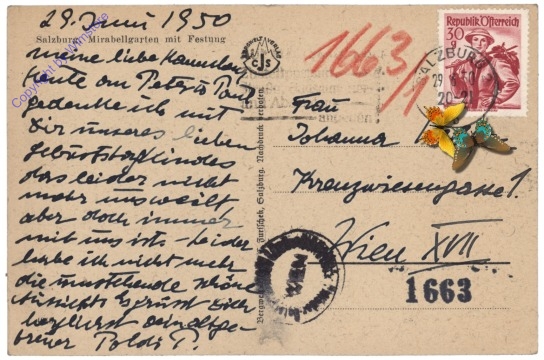 29. Juni 1950
Salzburg, Mirabellgarten mit Festung
meine liebe
Heute am Peter u Paul
gedenke ich mit
Dir unseres lieben
Geburtstagskindes
das leider nicht
mehr uns weilt
aber doch immer
mit uns ist - Leider
habe ich nicht mehr
die umstehende schöne
Aussicht. Es grüsst Dich
herzlichst
treuer Poldi P.
Copyright by
CJS
1663/1
Republik Österreich
30 g
SALZBURG
29. 6. 50
20-21
Frau
Johanna
Kreuzwiesengasse 1.
Wien XVII
1663
Jurischek, Salzburg. Nachdruck verboten.